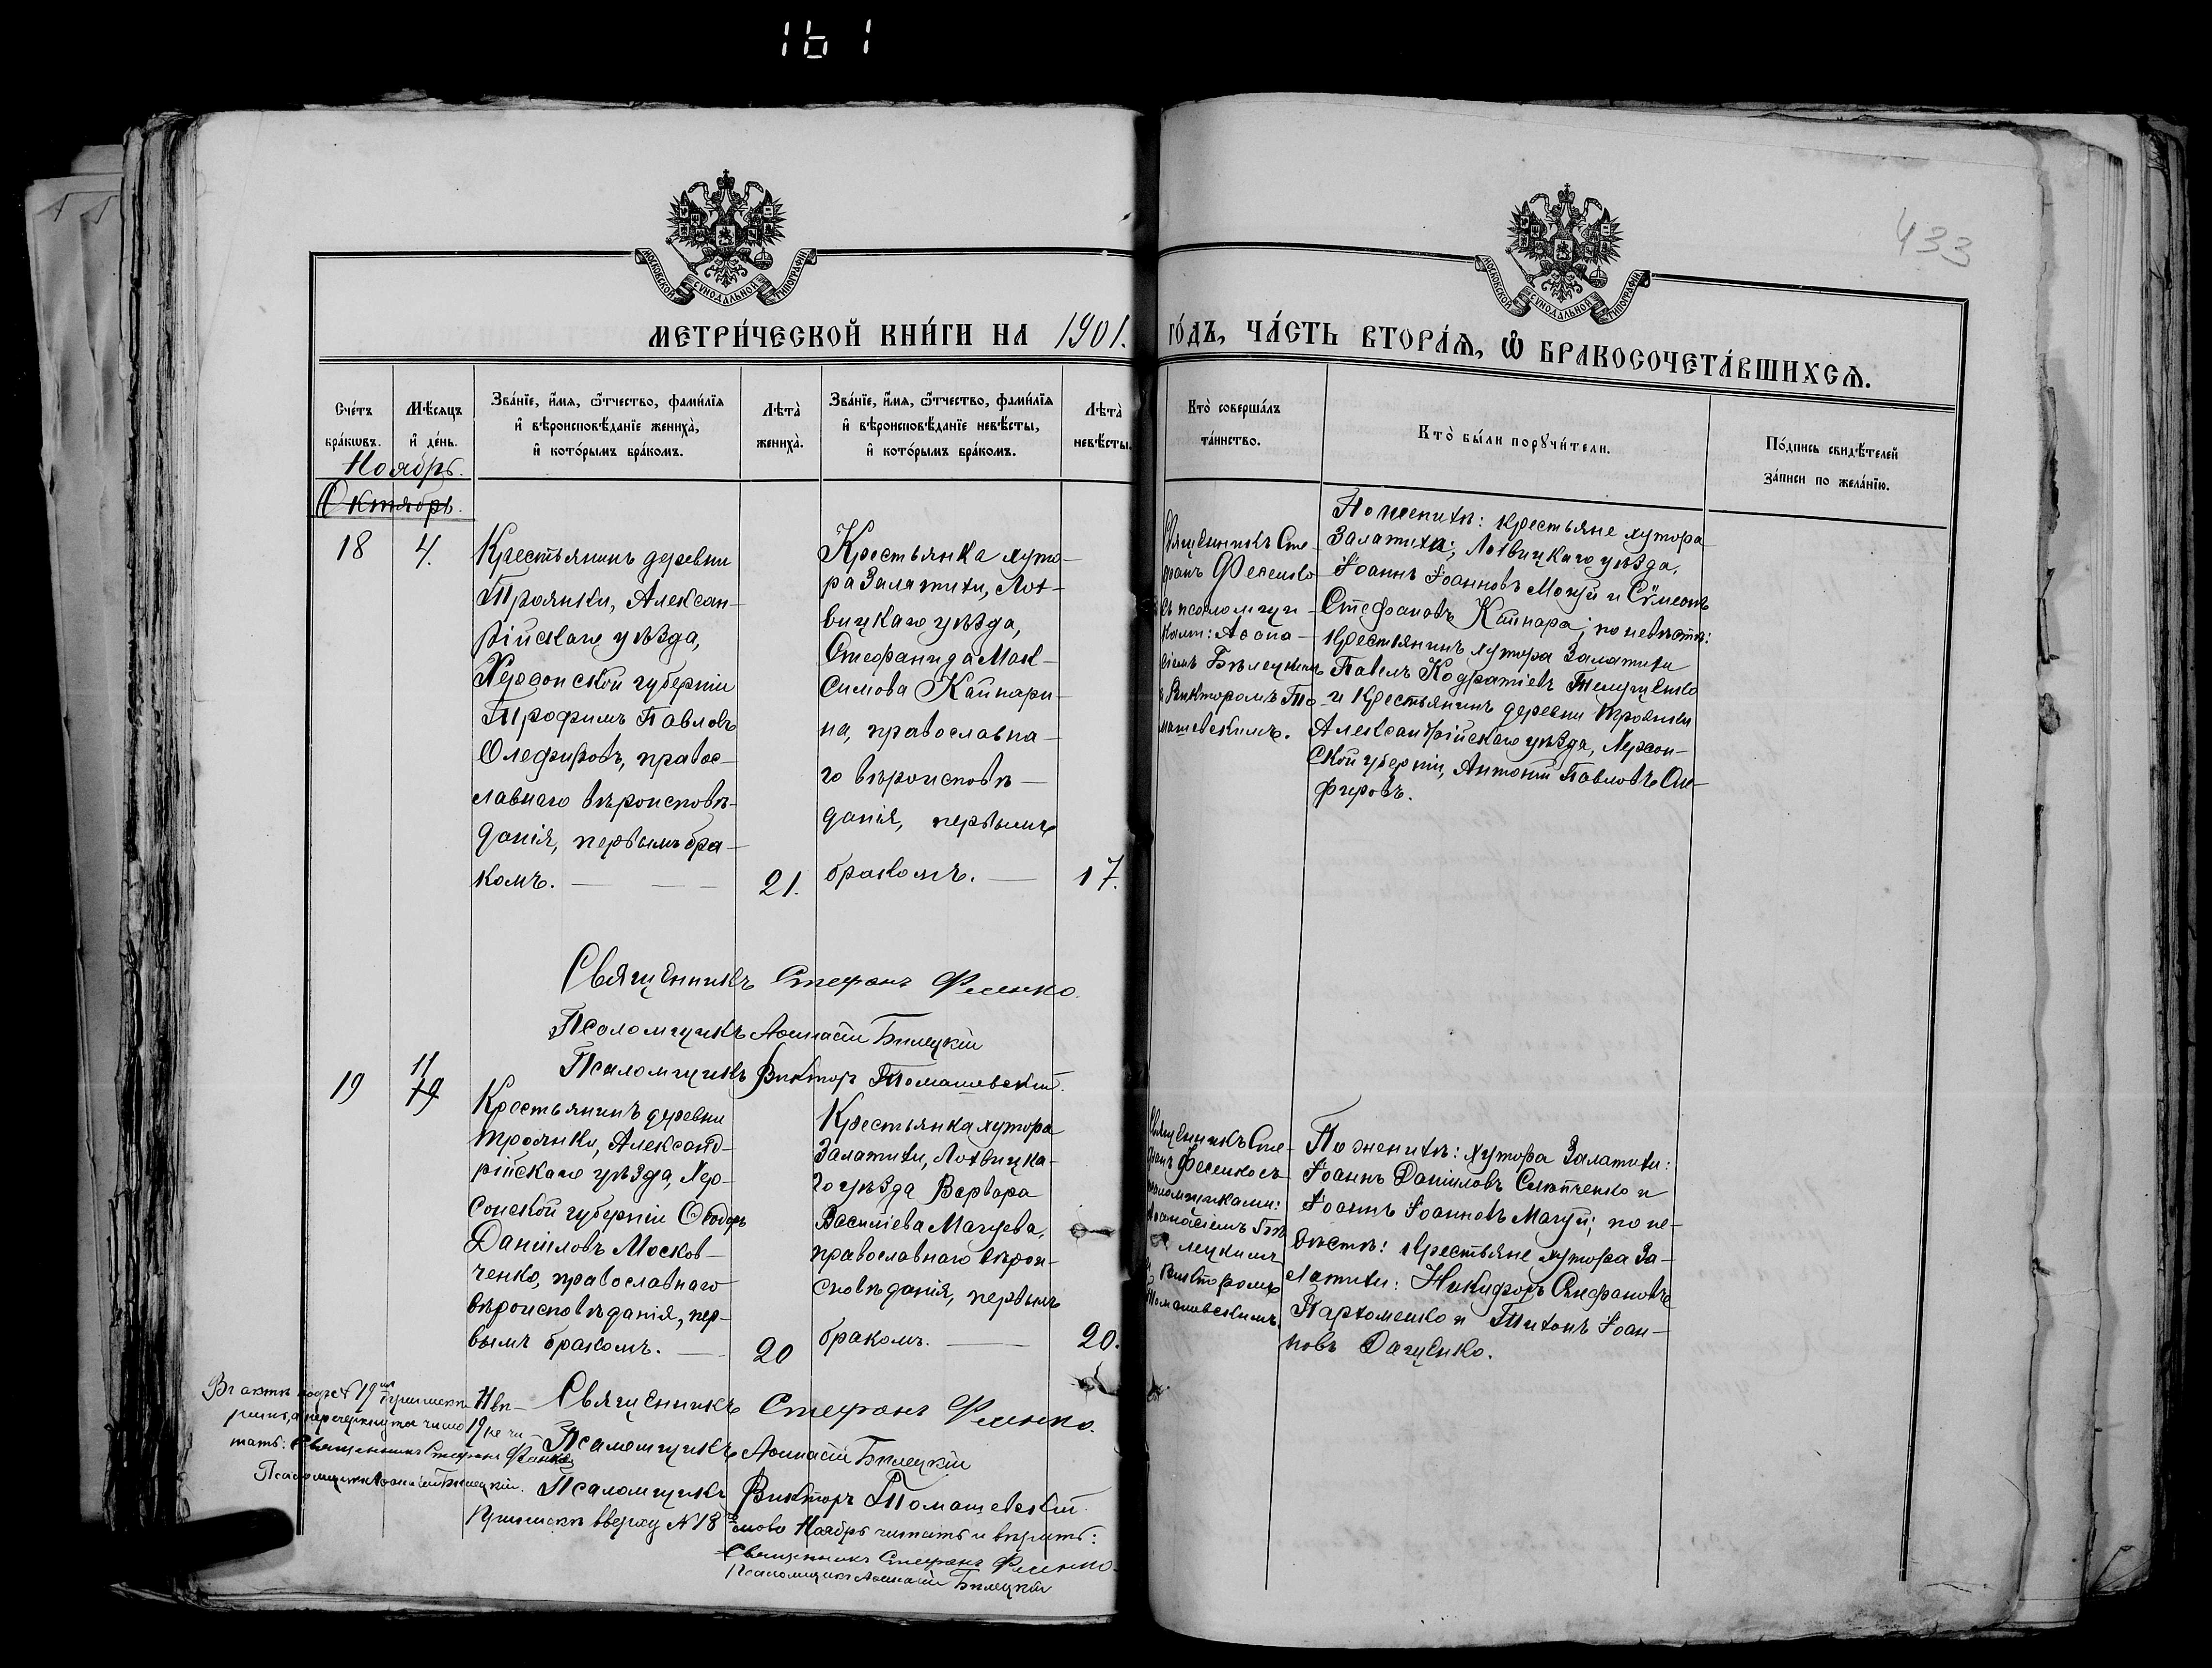 161
433
МОСКОВСКОЙ СѴНОДАЛЬНОЙ ТИПОГРАФІИ
МОСКОВСКОЙ СѴНОДАЛЬНОЙ ТИПОГРАФІИ
МЕТРИ́ЧЕСКОЙ КНИ́ГИ НА 1901. ГО́ДЪ, ЧА́СТЬ ВТОРА́Ѧ, Ѽ БРАКОСОЧЕТА́ВШИХСѦ.
Сче́тъ
бра́кѡвъ.
Мѣ́сѧцъ
и҆ де́нь.
Зва́нїе, и҆́мѧ, ѻ҆́тчество, фами́лїѧ
и҆ вѣроисповѣ́данїе жениха̀,
и҆ кото́рымъ бра́комъ.
Лѣ́та̀
жениха̀.
Зва́нїе, и҆́мѧ, ѻ҆́тчество, фами́лїѧ
и҆ вѣроисповѣ́данїе невѣ́сты,
и҆ кото́рымъ бра́комъ.
Лѣ́та̀
невѣ́сты.
Кто̀ соверша́лъ
та́инство.
Кто̀ бы́ли порꙋчи́тели.
По́дпись свидѣ́телей
за́писи по жела́нїю.
Ноябрь.
Октябрь.
18
4.
Крестьянинъ деревни
Троянки, Алексан-
рійскаго уѣзда,
Херсонской губерніи
Трофимъ Павловъ
Олефировъ, правос-
лавнаго вѣроисповѣ-
данія, первымъ бра-
комъ.
21.
Крестьянка хуто-
ра Залатихи, Лох-
вицкаго уѣзда,
Стефанида Мак-
симова Кайнари-
на, православна-
го вѣроисповѣ-
данія, первымъ
бракомъ.
17.
Священникъ Сте-
фанъ Фесенко
съ псаломщи-
ками: Аѳана-
сіемъ Бѣлецкимъ
и Викторомъ То-
машевскимъ.
По женихѣ: крестьяне хутора
Залатихи, Лохвицкаго уѣзда,
Іоаннъ Іоанновъ Моцуй и Сѵмеонъ
Стефановъ Кайнара; по невѣстѣ:
крестьянинъ хутора Залатихи
Павелъ Кодратіевъ Телущенко
и крестьянинъ деревни Троянки
Александрійскаго уѣзда, Херсон-
ской губерніи, Антоній Павловъ Оле-
фировъ.
Священникъ Стефанъ Фесенко.
Псаломщикъ Аѳанасій Билецкій
Псаломщикъ Викторъ Томашевскій.
19
11
19
Крестьянинъ деревни
Троянки, Александ-
рійскаго уѣзда, Хер-
сонской губерніи Ѳеодоръ
Даніиловъ Москов-
ченко, православнаго
вѣроисповѣданія, пер-
вымъ бракомъ.
20
Крестьянка хутора
Залатихи, Лохвицка-
го уѣзда Варвара
Василіева Мацуева,
православнаго вѣрои-
сповѣданія, первымъ
бракомъ.
20.
Священникъ Сте-
фанъ Фесенко съ
псаломщиками:
Аѳанасіемъ Бѣ-
лецкимъ
и Викторомъ
Томашевскимъ.
По женихѣ: хутора Залатихи:
Іоаннъ Даніиловъ Слѣпченко и
Іоаннъ Іоанновъ Мацуй; по не-
вѣстѣ: крестьяне хутора За-
латихи: Никифоръ Стефановъ
Пархоменко и Тихонъ Іоан-
новъ Дащенко.
Священникъ Стефанъ Фесенко.
Псаломщикъ Аѳанасій Билецкій
Псаломщикъ Викторъ Томашевскій.
Въ актѣ подъ № 19 припискѣ 11 вѣ-
рить, а перечеркнутое число 19 не чи-
тать: Священникъ Стефанъ Фесенко
Псаломщикъ Аѳанасій Билецкій.
Припискѣ вверху № 18 слово Ноябрь читать и вѣрить:
Священникъ Стефанъ Фесенко
Псаломщикъ Аѳанасій Билецкій